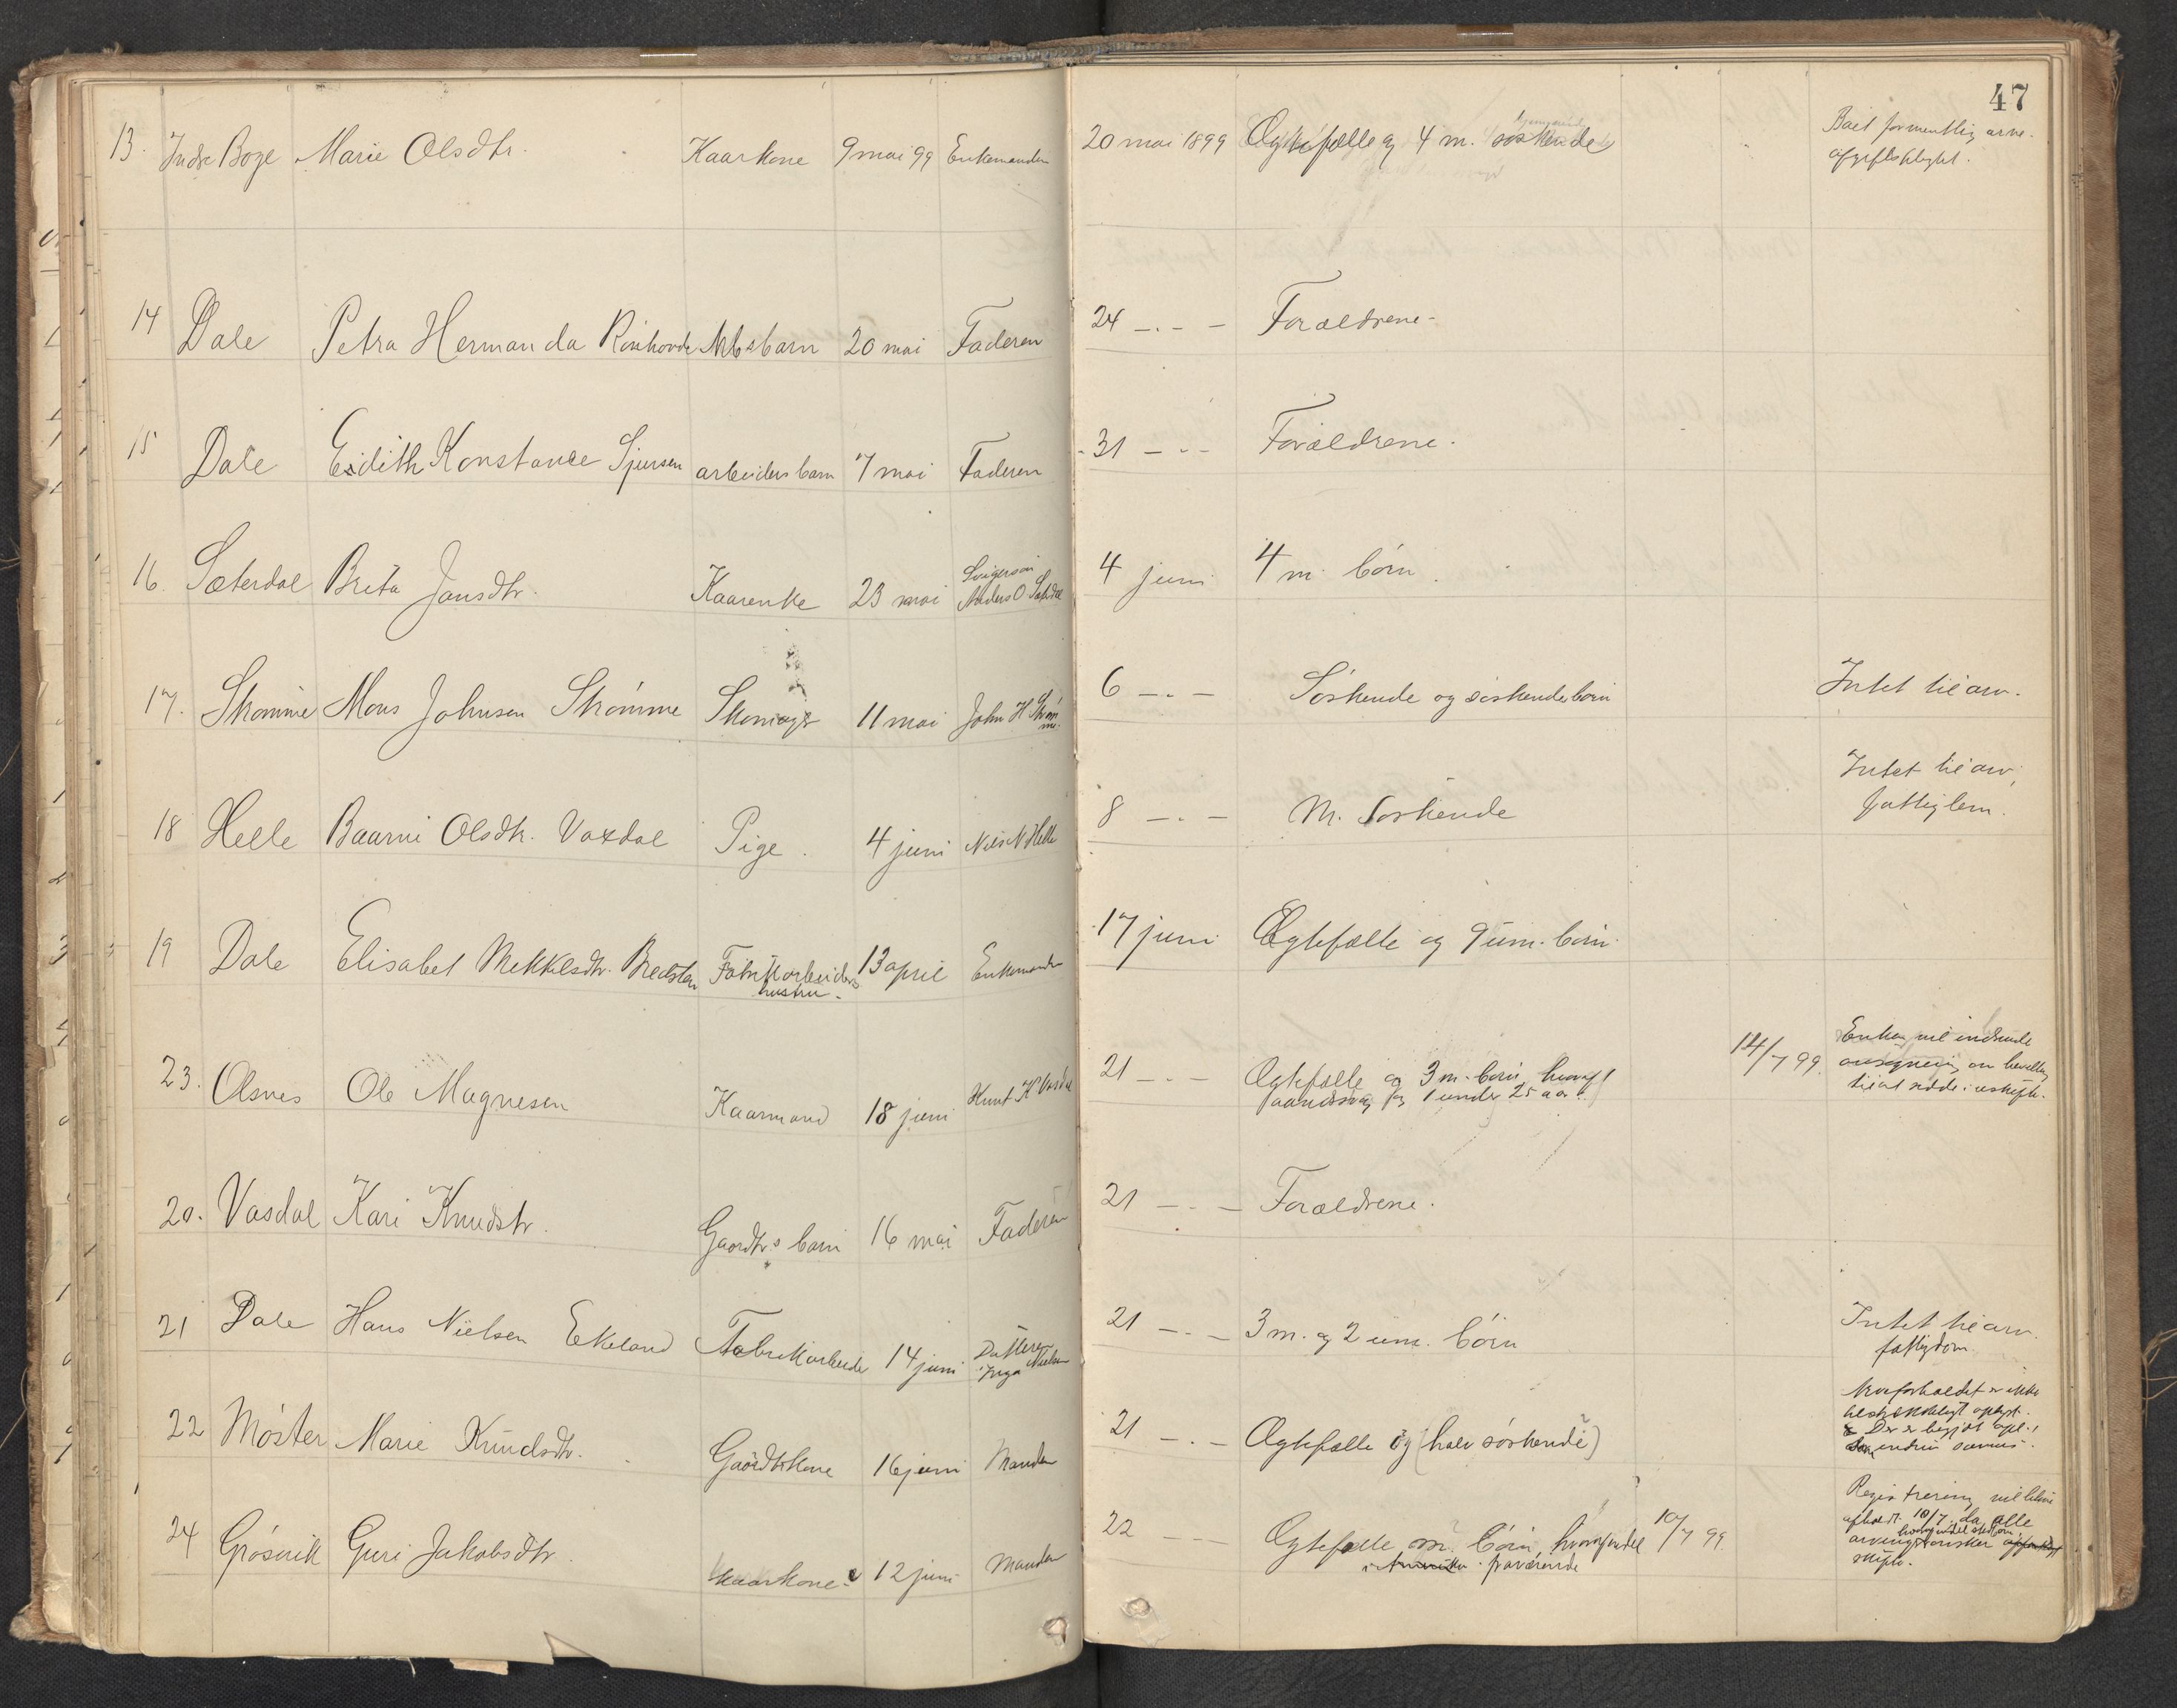 47
13. Indre Boge Marie Olsdtr. Kaarkone 9 mai 99 Enkemanden 20 mai 1899 Ægtefælle og 4 m. søskende Boet formentlig arve-
afgiftspligtet.
14 Dale Petra Hermanda Arbsbarn 20 mai Faderen 24 -.- - Forældrene-
15 Dale Edith Konstance Sjursen arbeiders barn 7 mai Faderen 31 - -.- Forældrene.
Svigersøn
16. Sæterdal Brita Jansdtr. Kaarenke 23 mai Anders O. 4 juni 4 m. børn.
17. Skømme Mons Johnsen Skømme Skomager 11 mai John H Skøm
me. 6 -.- - Søskende og søskendebørn Intet til arv.
18 Helle Baarni Olsdtr. Vaxdal Pige. 4 juni Nils N Helle 8 -.- - M. søskende Intet til arv,
fattiglem.
19 Dale Elisabet Mikkelsdtr. Fabrikarbeiders 13 april Enkemanden 17 juni Ægtefælle og 9 um. børn.
hustru.
23. Olsnes Ole Magnesen Kaarmand 18 juni Knut K 21 -.- - Ægtefælle og 3 m. børn, hvoraf 14/7 99. Enken vil indsende
ansøgning om bevilling
og 1 under 25 aar. til at sidde i uskifte.
20. Vasdal Kari Knudstr. Gaardbrs barn 16 mai Faderen 21 - -.- Forældrene.
21 Dale Hans Nielsen Eekeland Fabrikarbeider 14 juni Datteren
Inga Nielsen 21 -.- - 3 m. og 2 um. børn Intet til arv.
fattigdom.
22 Møster Marie Knudsdtr. Gaardbrkone 16 juni Manden 21 -.- - Ægtefælle og (halv søskende?) Arveforholdet er ikke
tilstrækkeligt oplyst.
24 Grøsvik Guri Jakobsdtr. Kaarkone. 12 juni Manden 22 - - Ægtefælle m. børn, hvoraf endel 10/7 99. Registrering vil blive
i Amerika fraværende afholdt 10/7. da alle
skifte.